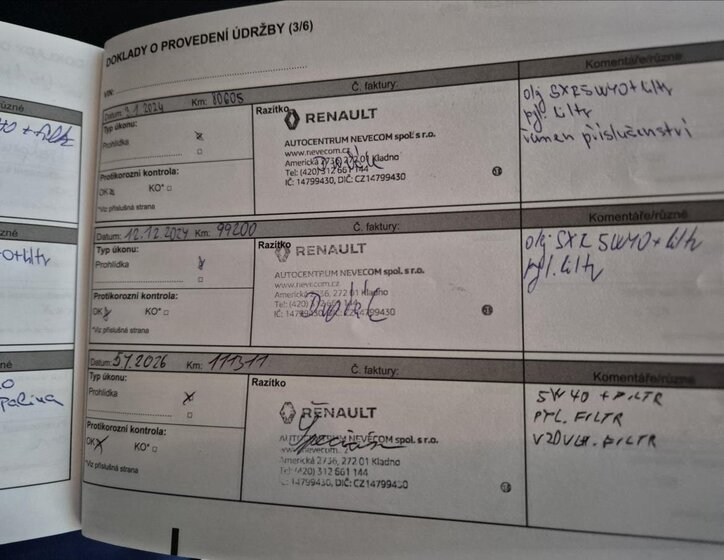 DOKLADY O PROVEDENÍ ÚDRŽBY (3/6)
VIN:
Datum: 3.1.2024 Km: 80605
Č. faktury:
Komentáře/různé
Typ úkonu:
Prohlídka
Protikorozní kontrola:
OK KO*
*Viz příslušná strana
Razítko
RENAULT
AUTOCENTRUM NEVECOM spol. s r.o.
www.nevecom.cz
Americká 2736, 272 01 Kladno
Tel: (420) 312 661 144
IČ: 14799430, DIČ: CZ14799430
olej SXR 5W40 + filtr
pyl. filtr
řemen příslušenství
Datum: 12.12.2024 Km: 99200
Č. faktury:
Komentáře/různé
Typ úkonu:
Prohlídka
Protikorozní kontrola:
OK KO*
*Viz příslušná strana
Razítko
RENAULT
AUTOCENTRUM NEVECOM spol. s r.o.
www.nevecom.cz
Americká 2736, 272 01 Kladno
Tel: (420) 312 661 144
IČ: 14799430, DIČ: CZ14799430
olej SXR 5W40 + filtr
pyl. filtr
Datum: 5.1.2026 Km: 111311
Č. faktury:
Komentáře/různé
Typ úkonu:
Prohlídka
Protikorozní kontrola:
OK KO*
*Viz příslušná strana
Razítko
RENAULT
AUTOCENTRUM NEVECOM spol. s r.o.
www.nevecom.
Americká 2736, 272 01 Kladno
Tel: (420) 312 661 144
IČ: 14799430, DIČ: CZ14799430
5W40 + FILTR
PYL. FILTR
VZDUCH. FILTR